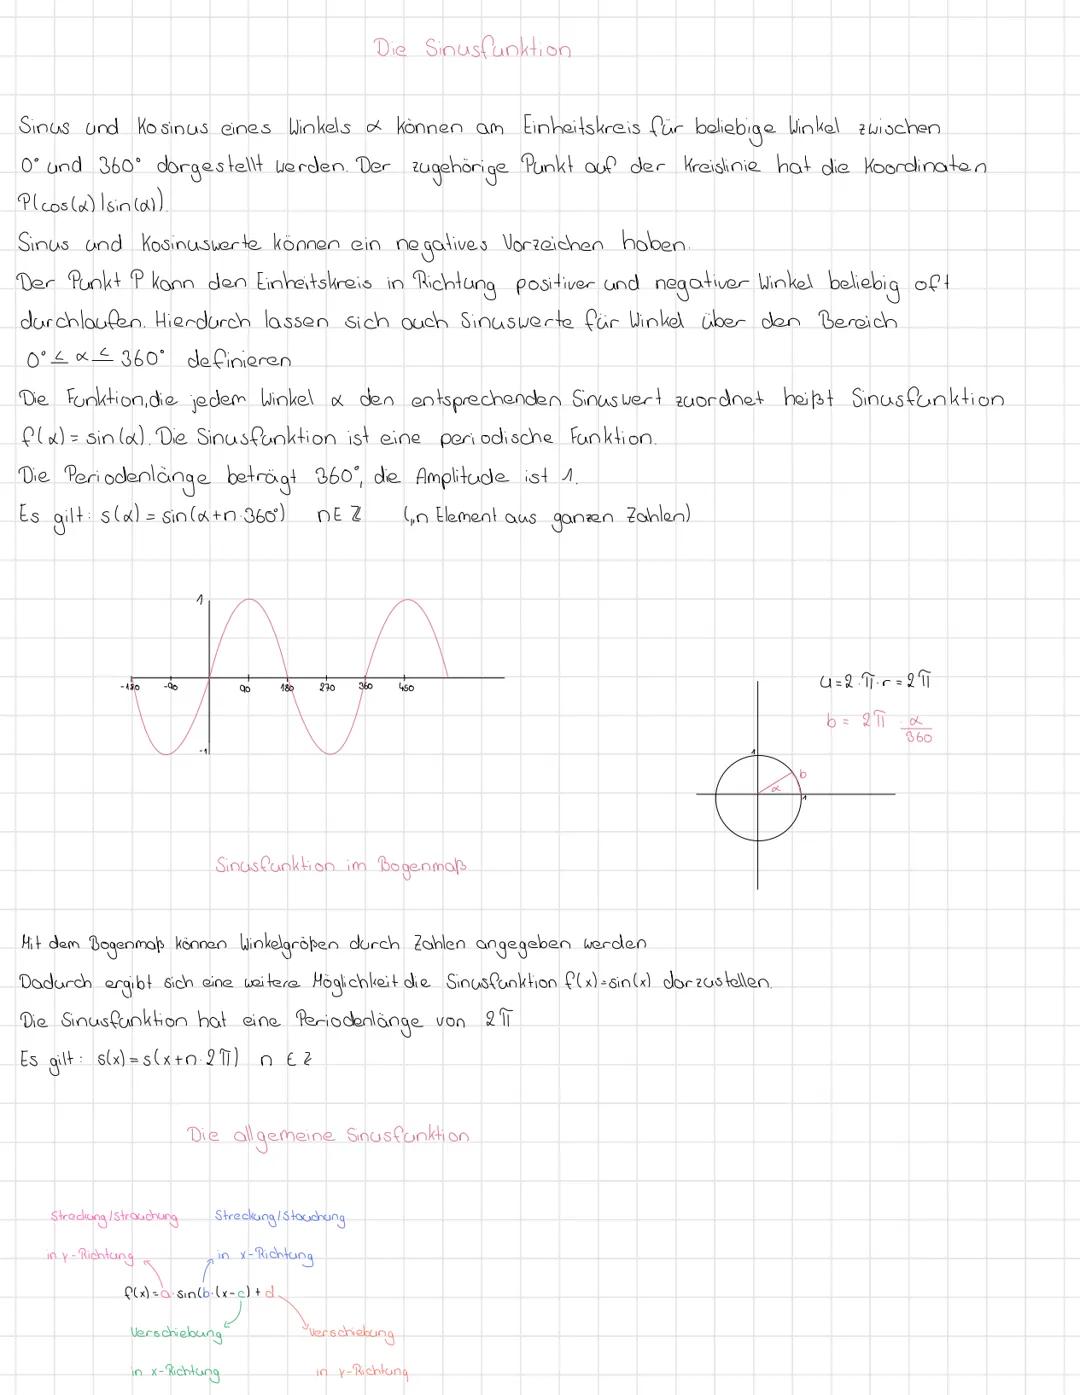 Die Sinusfunktion
Sinus und Kosinus eines Winkels α können am Einheitskreis für beliebige Winkel zwischen
0° und 360° dargestellt werden. Der zugehörige Punkt auf der Kreislinie hat die Koordinaten
P(cos(α)|sin(α)).
Sinus und Kosinuswerte können ein negatives Vorzeichen haben.
Der Punkt P kann den Einheitskreis in Richtung positiver und negativer Winkel beliebig oft
durchlaufen. Hierdurch lassen sich auch Sinuswerte für Winkel über den Bereich
0° ≤ α ≤ 360° definieren
Die Funktion, die jedem Winkel α den entsprechenden Sinuswert zuordnet heißt Sinusfunktion
f(α) = sin(α). Die Sinusfunktion ist eine periodische Funktion.
Die Periodenlänge beträgt 360°, die Amplitude ist 1.
Es gilt: s(α) = sin(α+n·360°) n∈ℤ („n Element aus ganzen Zahlen)
1
-180 -90 90 180 270 360 450
-1
U = 2·π·r = 2π
b = 2π · α/360
1
b
α
1
Sinusfunktion im Bogenmaß
Mit dem Bogenmaß können Winkelgrößen durch Zahlen angegeben werden
Dadurch ergibt sich eine weitere Möglichkeit die Sinusfunktion f(x)=sin(x) darzustellen.
Die Sinusfunktion hat eine Periodenlänge von 2π
Es gilt: s(x) = s(x+n·2π) n ∈ ℤ
Die allgemeine Sinusfunktion
Streckung/Strauchung Streckung/Stauchung
in y-Richtung in x-Richtung
f(x) = a·sin(b·(x-c)+d
Verschiebung Verschiebung
in x-Richtung in y-Richtung